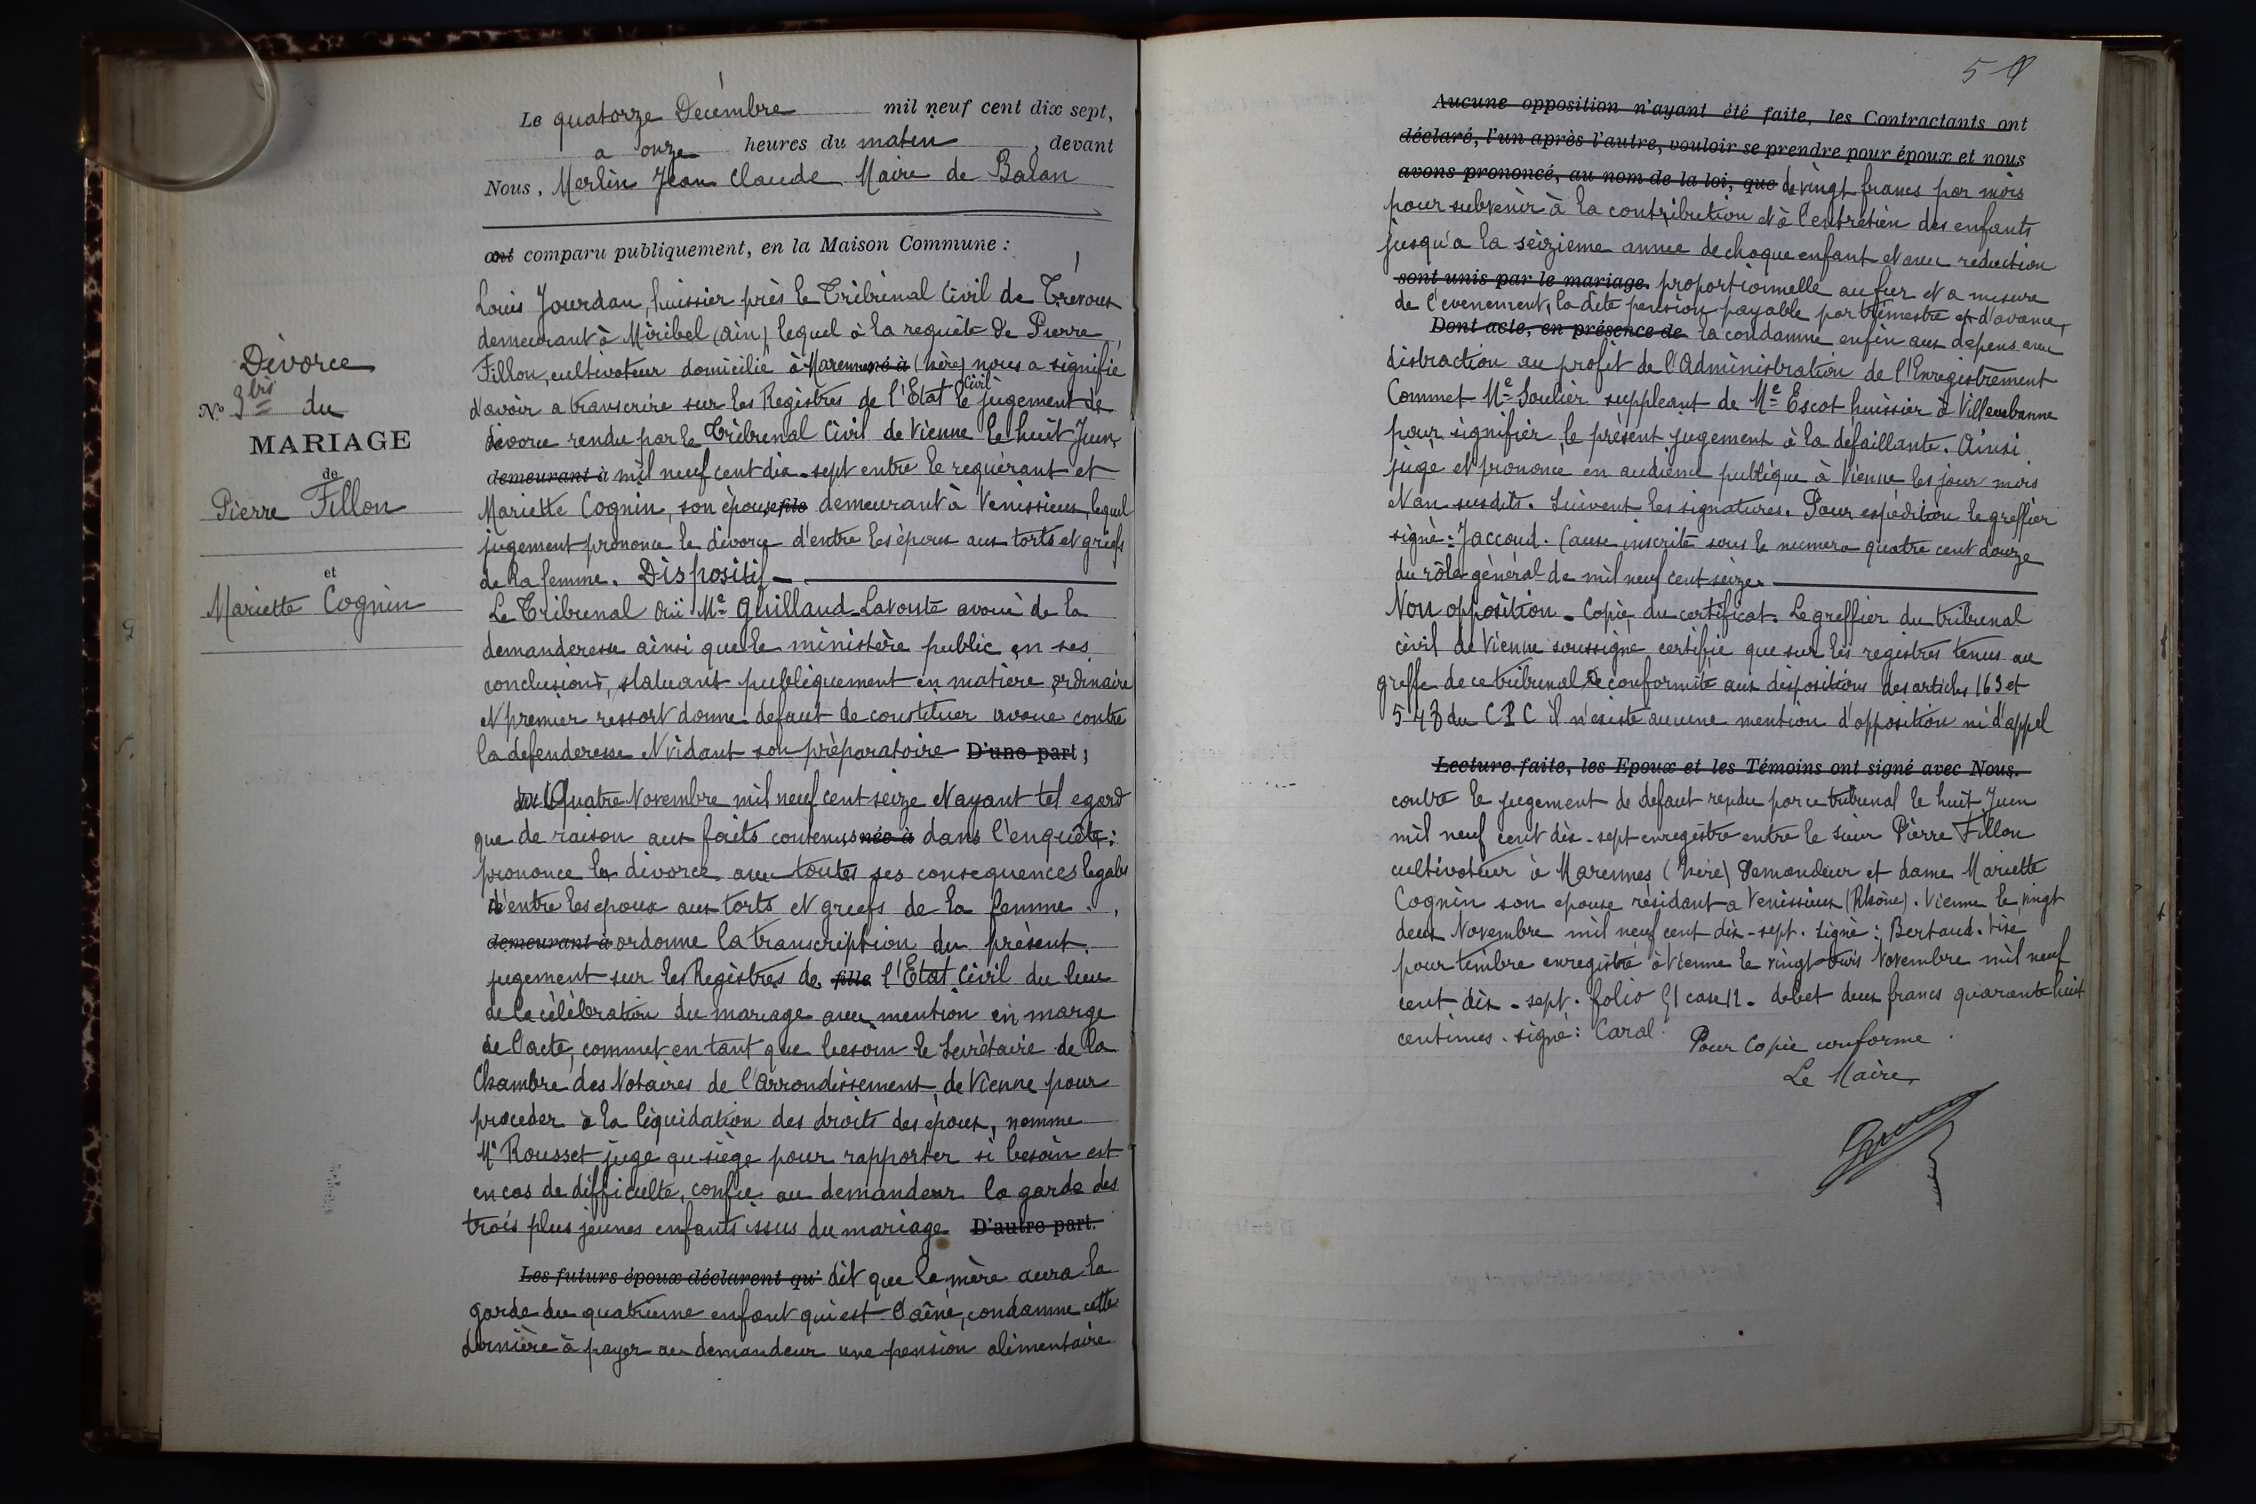 Divorce
N° 3bis du
MARIAGE
de
Pierre Fillon
et
Mariette Cognin
Le quatorze Décembre mil neuf cent dix sept,
a onze heures du maten, devant
Nous, Merlin Jean Claude Maire de Balan
ont comparu publiquement, en la Maison Commune :
Louis Jourdan, huissier près le Tribunal Civil de Trevoux
demeurant à Miribel (Ain) lequel à la requête de Pierre
Fillon, cultivateur domicilié à Marennes né à (Isère) nous a signifié
d'avoir a transcrire sur les Registres de l'Etat Civil le jugement de
divorce rendu par le Tribunal Civil de Vienne le huit Juin
demeurant à mil neuf cent dix-sept entre le requérant et
Mariette Cognin, son épouse fils demeurant à Venissieux, lequel
jugement prononce le divorce d'entre les époux aux torts et griefs
de la femme. Dispositif
Le Tribunal Ouï Me Guillaud-Lavonte avoué de la
demanderesse ainsi que le ministère public en ses
conclusions, statuant publiquement en matière ordinaire
et premier ressort donne defaut de constituer avoue contre
la defenderesse et vidant son préparatoire D'une part;
du Quatre Novembre mil neuf cent seize et ayant tel egard
que de raison aux faits contenus née à dans l'enquête:
prononce le divorce avec toutes ses consequences legales
d'entre les epoux aux torts et griefs de la femme.
demeurant à ordonne la transcription du présent
jugement sur les Registres de fille l'Etat Civil du lieu
de la célébration du mariage avec mention en marge
de l'acte, commet en tant que besoin le Secrétaire de la
Chambre des Notaires de l'Arrondissement de Vienne pour
proceder à la liquidation des droits des époux, nomme
Mr Rousset juge qu siège pour rapporter si besoin est
en cas de difficulte, confie au demandeur la garde des
trois plus jeunes enfants issus du mariage D'autre part.
Les futurs époux déclarent qu' dit que la mère aura la
garde du quatrième enfant qui est l'aîné, condamne cette
dernière à payer au demandeur une pension alimentaire
5
Aucune opposition n'ayant été faite, les Contractants ont
déclaré, l'un après l'autre, vouloir se prendre pour époux et nous
avons prononcé, au nom de la loi, que de vingt francs par mois
pour subvenir à la contribution et à l'entretien des enfants
jusqu'a la seizieme annee de chaque enfant et avec reduction
sont unis par le mariage. proportionnelle au fur et a mesure
de l'evenement, la dite pension payable par trimestre et d'avance,
Dont acte, en présence de la condamne enfin aux depens avec
distraction au profit de l'Administration de l'Enregistrement
Commet Me Soulier suppleant de Me Escot huissier à Villeurbanne
pour signifier le présent jugement à la defaillante. Ainsi
jugé et prononcé en audience publique à Vienne les jour mois
et an susdits. Suivent les signatures. Pour expédition le greffier
signé: Jaccoud. Cause inscrite sous le numero quatre cent douze
du rôle général de mil neuf cent seize.
Non opposition - Copie du certificat. Le greffier du tribunal
civil de Vienne soussigné certifie que sur les registres tenus au
greffe de ce tribunal de conformité aux dispositions des articles 163 et
548 du C P C il n'existe aucune mention d'opposition ni d'appel
Lecture faite, les Epoux et les Témoins ont signé avec Nous.
contre le jugement de defaut rendu par ce tribunal le huit Juin
mil neuf cent dix-sept enregistré entre le sieur Pierre Fillon
cultivateur à Marennes (Isère) Demandeur et dame Mariette
Cognin son epouse résidant a Venissieux (Rhône). Vienne le vingt
deux Novembre mil neuf cent dix-sept. Signé: Bertaud. Visé
pour timbre enregistré à Vienne le vingt trois Novembre mil neuf
cent dix-sept. folio 51 case 12. debet deux francs quarante huit
centimes. signé: Caral.
Pour Copie conforme
Le Maire,